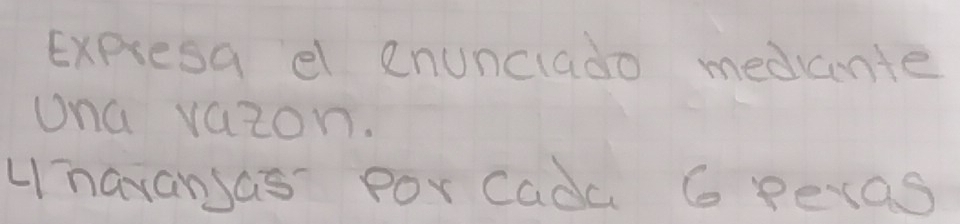 Expresa el enunciado mediante
una razon.
4 naranjas por cada 6 peras